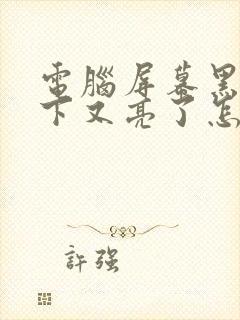 電腦屏幕黑
下又亮了怎
許強